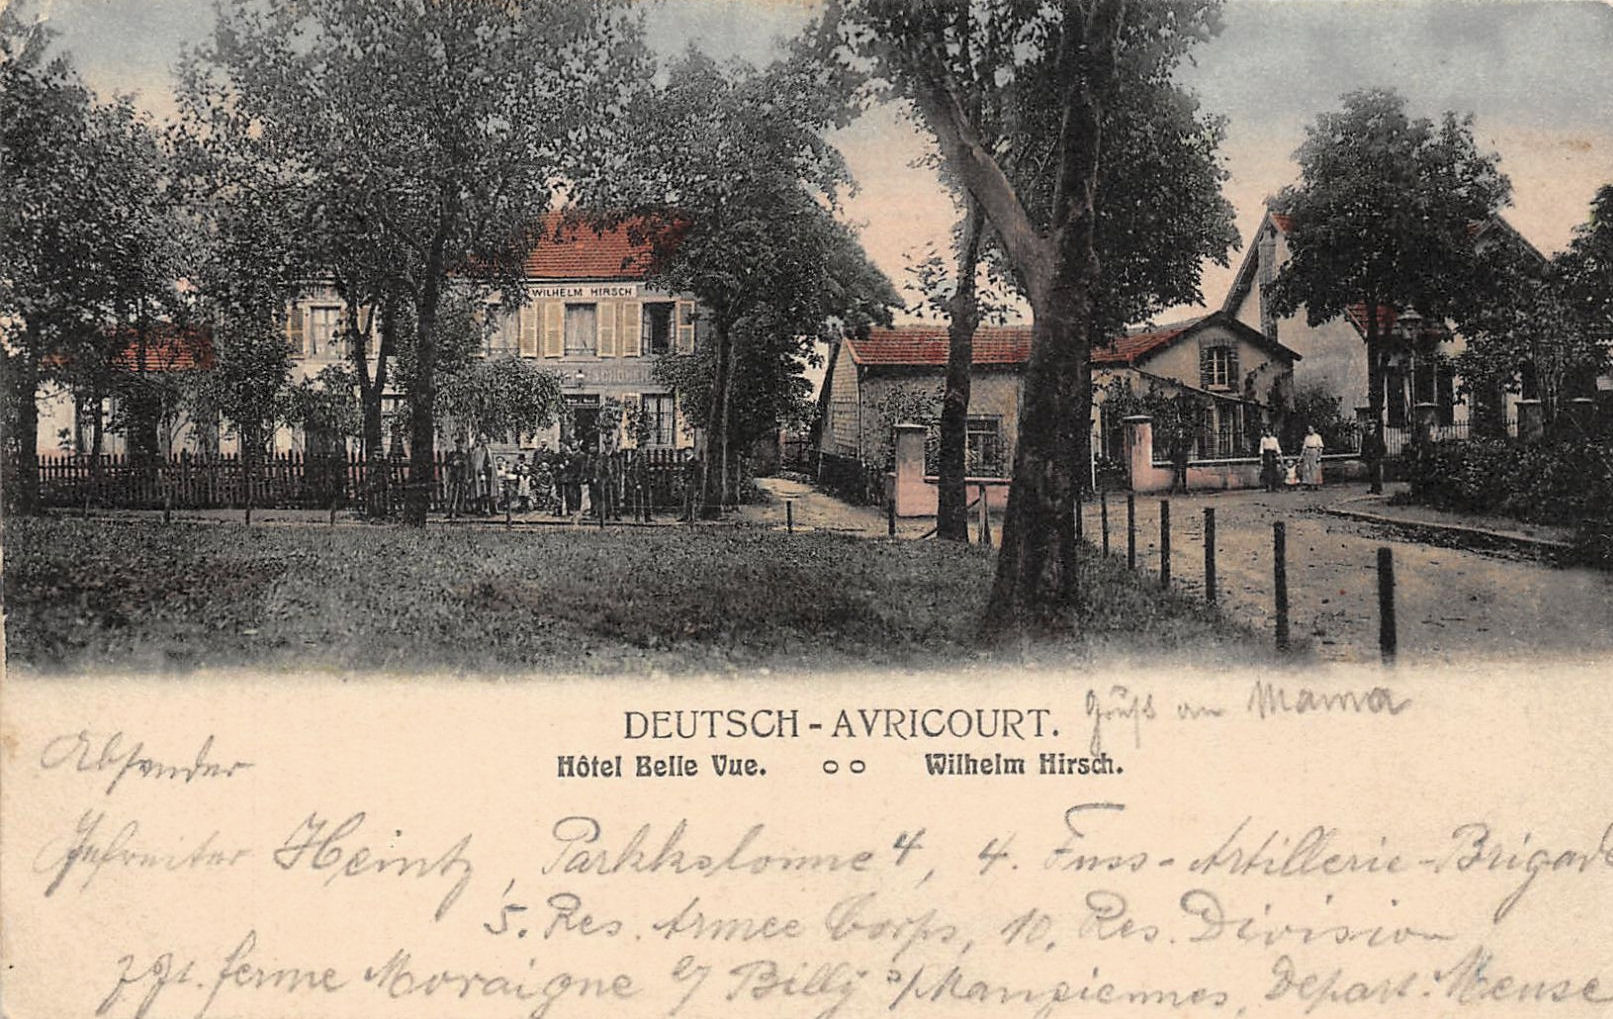 WILHELM HIRSCH
DEUTSCH-AVRICOURT.
Gruß an Mama
Hôtel Belle Vue. o o Wilhelm Hirsch.
Absender
Gefreiter Heintz, Parkkolonne 4, 4. Fuss-Artillerie-Brigade
5. Res. Armee Corps, 10. Res. Division
z. Zt. ferme Moraigne b/ Billy s/Mangiennes, Depart. Meuse